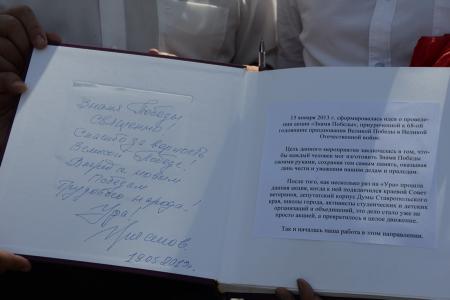 Знамя Победы
Священно
Спасибо за верность
Великой Победе!
трудового народа!
Ура!
15 января 2013 г. сформировалась идея о проведе-
нии акции «Знамя Победы», приуроченной к 68-ой
годовщине празднования Великой Победы в Великой
Отечественной войне.
Цель данного мероприятия заключалась в том, что-
бы каждый человек мог изготовить Знамя Победы
своими руками, сохраняя тем самым память, оказывая
дань чести и уважения нашим дедам и прадедам.
После того, как несколько раз на «Ура» прошла
данная акция, когда к ней подключился краевой Совет
ветеранов, депутатский корпус Думы Ставропольского
края, школы города, активисты студенческих и детских
организаций и объединений, это дело стало уже не
просто акцией, а превратилось в целое движение.
Так и началась наша работа в этом направлении.